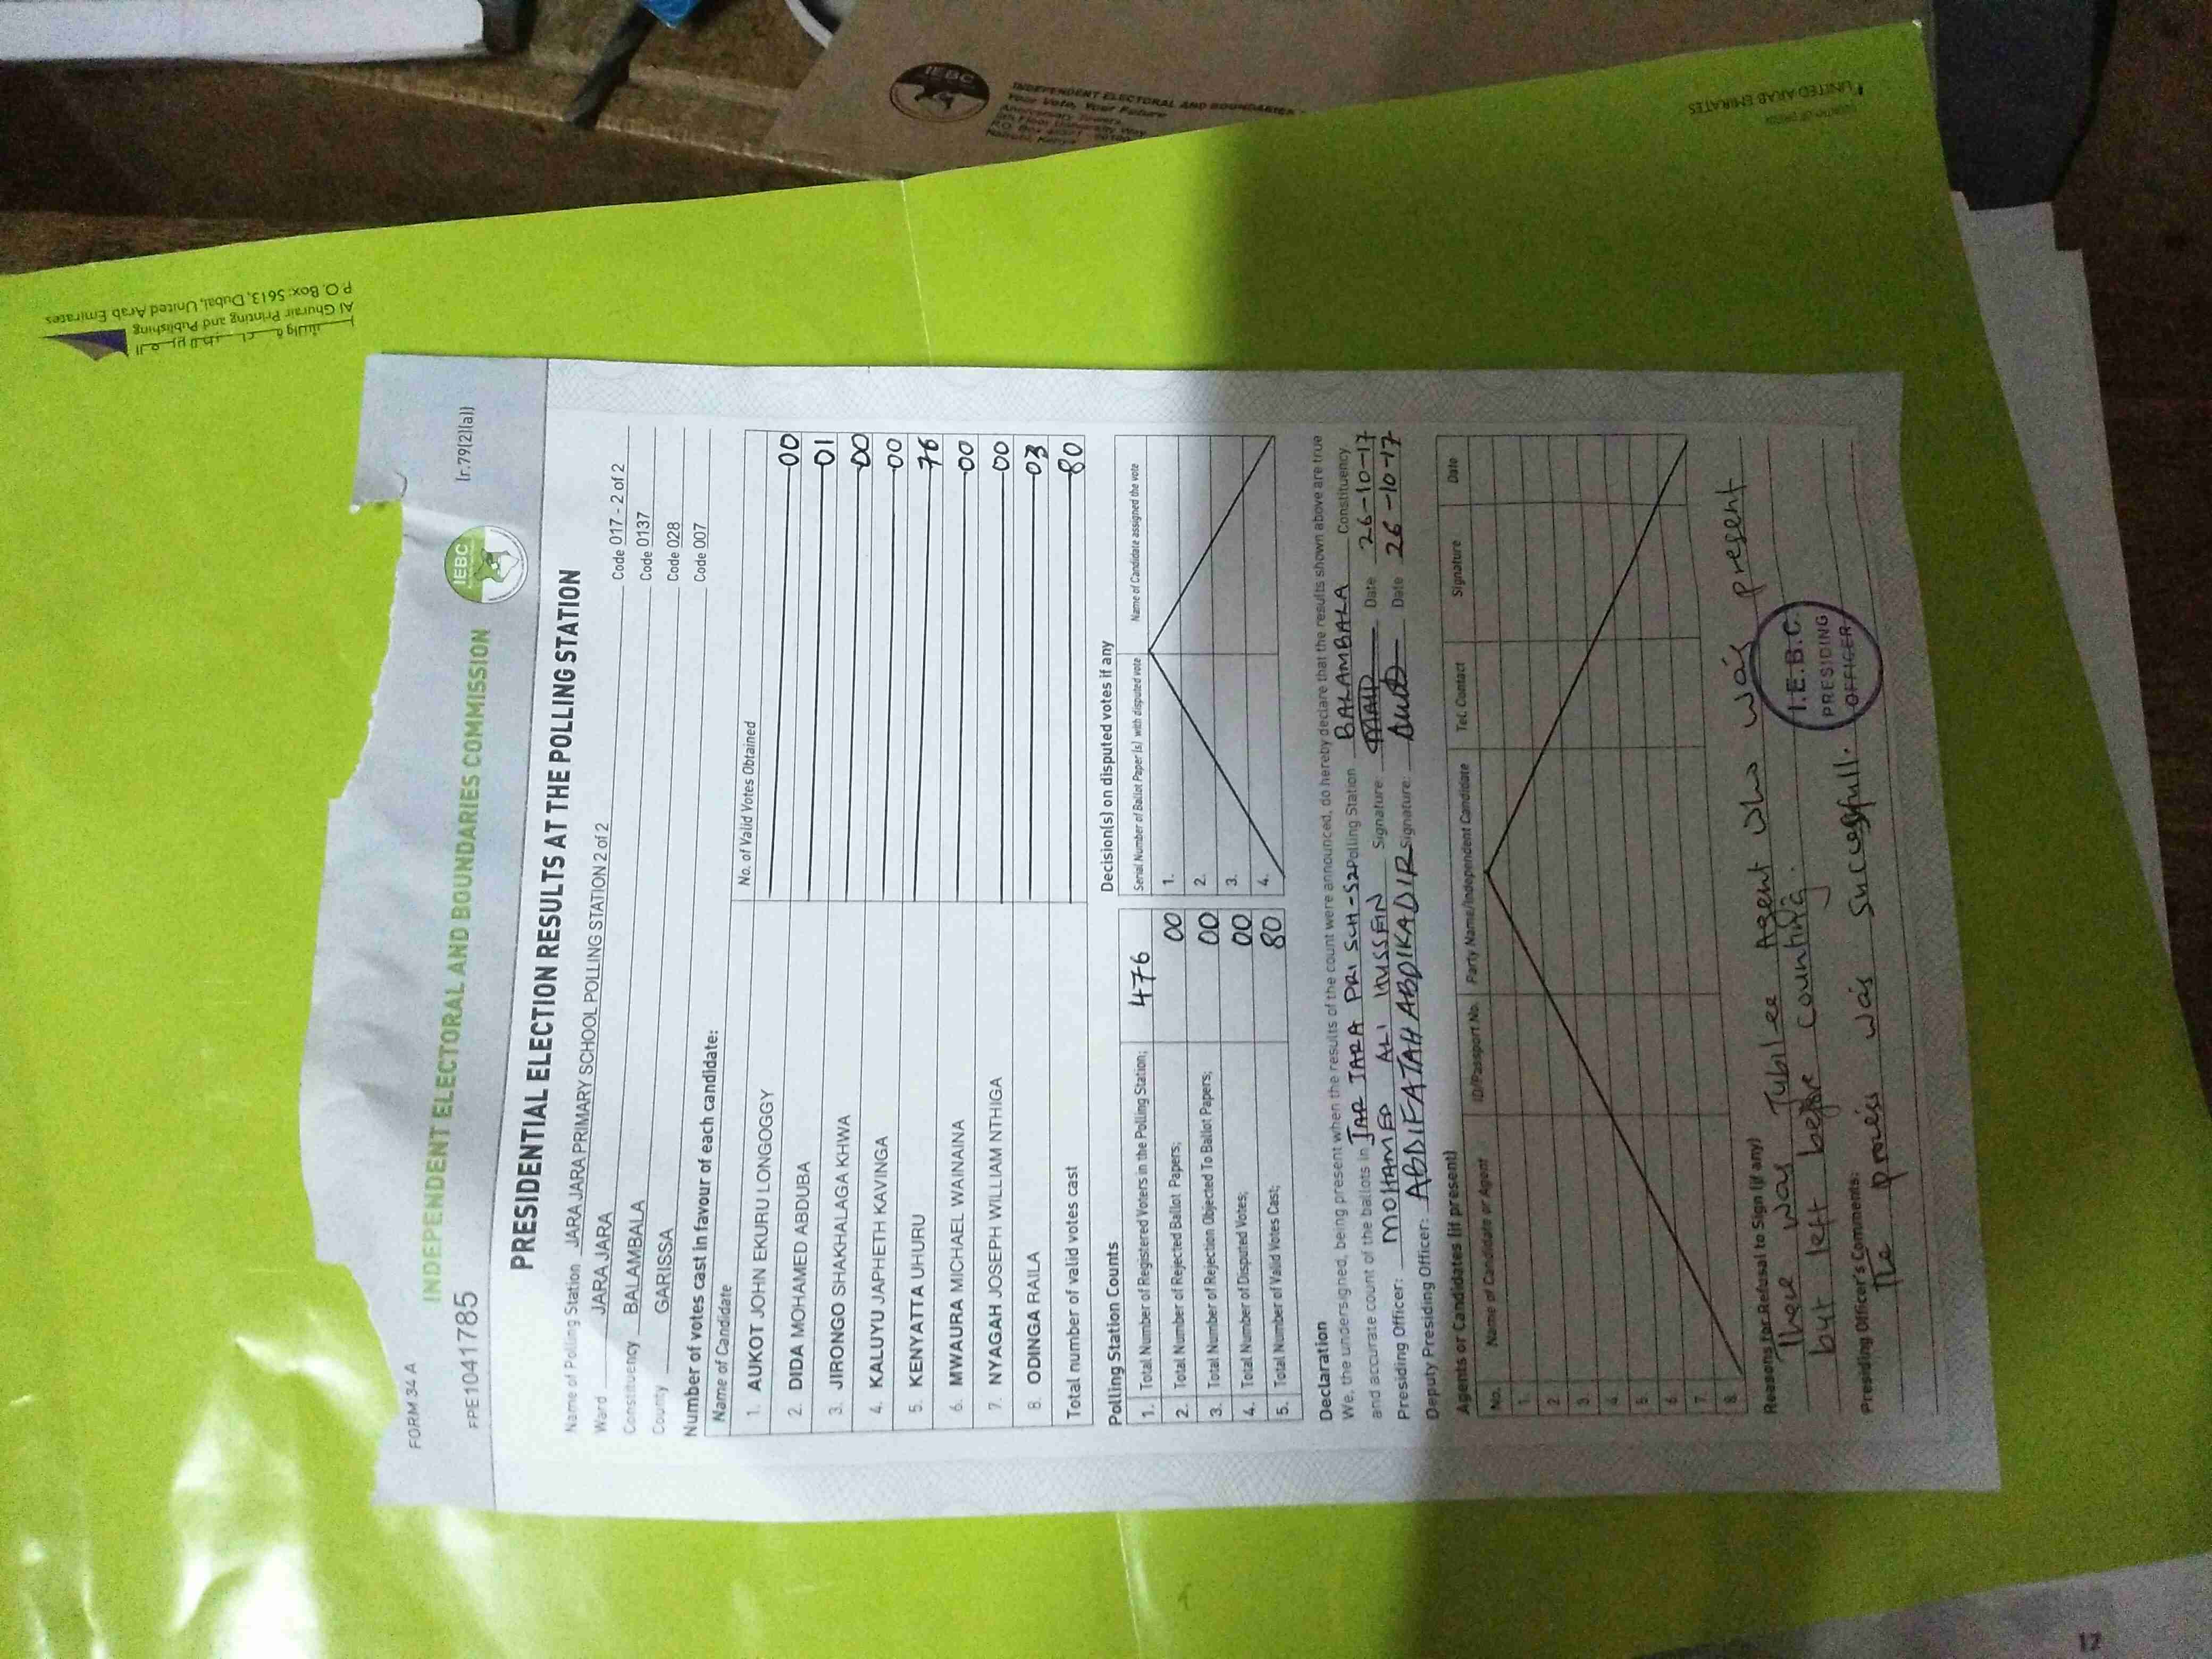 FORM 34 A
INDEPENDENT ELECTORAL AND BOUNDARIES COMMISSION
IEBC
(r.79(2)(a))
FPE1041785
PRESIDENTIAL ELECTION RESULTS AT THE POLLING STATION
Name of Polling Station JARA JARA PRIMARY SCHOOL POLLING STATION 2 of 2 Code 017 - 2 of 2
Ward JARA JARA Code 0137
Constituency BALAMBALA Code 028
County GARISSA Code 007
Number of votes cast in favour of each candidate:
Name of Candidate No. of Valid Votes Obtained
1. AUKOT JOHN EKURU LONGOGGY 00
2. DIDA MOHAMED ABDUBA 01
3. JIRONGO SHAKHALAGA KHWA 00
4. KALUYU JAPHETH KAVINGA 00
5. KENYATTA UHURU 76
6. MWAURA MICHAEL WAINAINA 00
7. NYAGAH JOSEPH WILLIAM NTHIGA 00
8. ODINGA RAILA 03
Total number of valid votes cast 80
Polling Station Counts
1. Total Number of Registered Voters in the Polling Station; 476
2. Total Number of Rejected Ballot Papers; 00
3. Total Number of Rejection Objected To Ballot Papers; 00
4. Total Number of Disputed Votes; 00
5. Total Number of Valid Votes Cast; 80
Decision(s) on disputed votes if any
Serial Number of Ballot Paper (s) with disputed vote Name of Candidate assigned the vote
1.
2.
3.
4.
Declaration
We, the undersigned, being present when the results of the count were announced, do hereby declare that the results shown above are true
and accurate count of the ballots in JAR JARA PRI SCH-S2 Polling Station BALAMBALA Constituency.
Presiding Officer: MOHAMED ALI HUSSEIN Signature: Date 26-10-17
Deputy Presiding Officer: ABDIFATAH ABDIKADIR Signature: Date 26-10-17
Agents or Candidates (if present)
No. Name of Candidate or Agent ID/Passport No. Party Name/Independent Candidate Tel. Contact Signature Date
1.
2
3.
4
5.
6
7.
8
Reasons for Refusal to Sign (if any)
There was Jubilee Agent who was present
but left before counting.
Presiding Officer's Comments:
The process was sucessfull.
I.E.B.C.
PRESIDING
OFFICER
Al Ghurair Printing and Publishing
P.O. Box: 5613, Dubai, United Arab Emirates
IEBC
INDEPENDENT ELECTORAL AND BOUNDARIES
Your Vote, Your Future
Anniversary Towers
University Way
P.O. Box
Nairobi, Kenya
UNITED ARAB EMIRATES
12